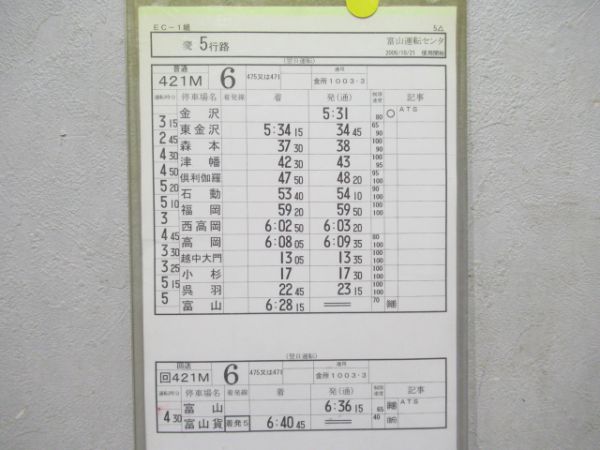 EC-1組 5△
変 5行路 富山運転センタ
2006/10/21 使用開始
(翌日運転)
普通 適用
421M 6 475又は471 金所1003・3
運転時分 停車場名 着発線 着 発(通) 制限速度 記事
金沢 5:31 80 ATS
3 15 東金沢 5:34 15 34 45 65 90
2 45 森本 37 30 38 90 100
4 30 津幡 42 30 43 95
4 50 倶利伽羅 47 50 48 20 95 100
5 20 石動 53 40 54 10 100 90
5 10 福岡 59 20 59 50 100
3 西高岡 6:02 50 6:03 20
4 30 高岡 6:08 05 6:09 35 80 100
3 30 越中大門 13 05 13 35 100
3 25 小杉 17 17 30 100
5 15 呉羽 22 45 23 15 100
5 富山 6:28 15 70
(翌日運転)
回送 適用
回421M 6 475又は471 金所1003・3
運転時分 停車場名 着発線 着 発(通) 制限速度 記事
富山 6:36 15 65 ATS
4 30 富山貨 着発5 6:40 45 40